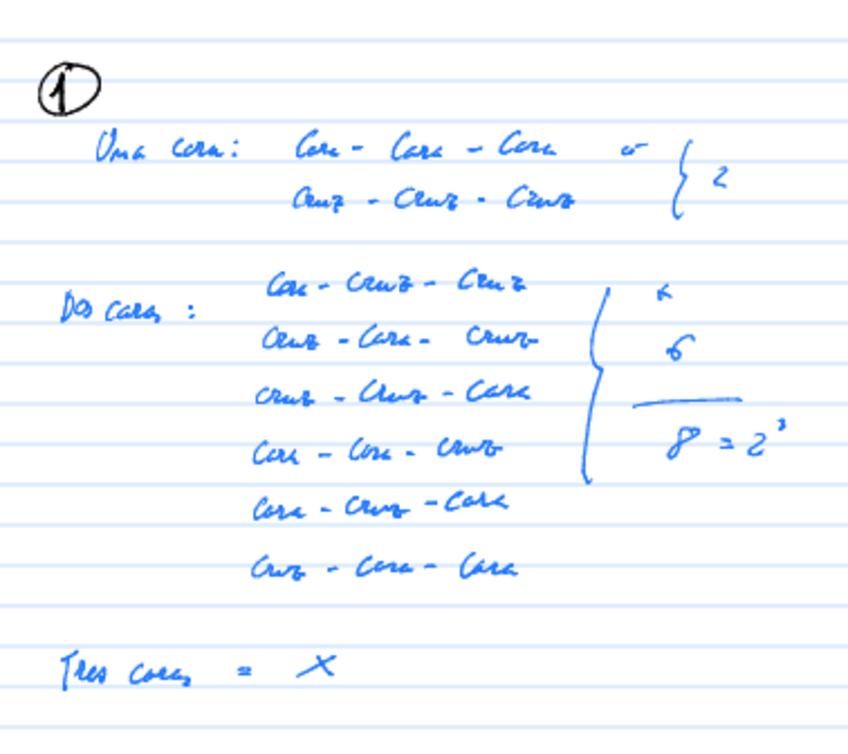 1
Una cara: Cara - Cara - Cara o } 2
Cruz - Cruz - Cruz
Dos caras: Cara - Cruz - Cruz
Cruz - Cara - Cruz 6
Cruz - Cruz - Cara
Cara - Cara - Cruz 8 = 2³
Cara - Cruz - Cara
Cruz - Cara - Cara
Tres caras = X